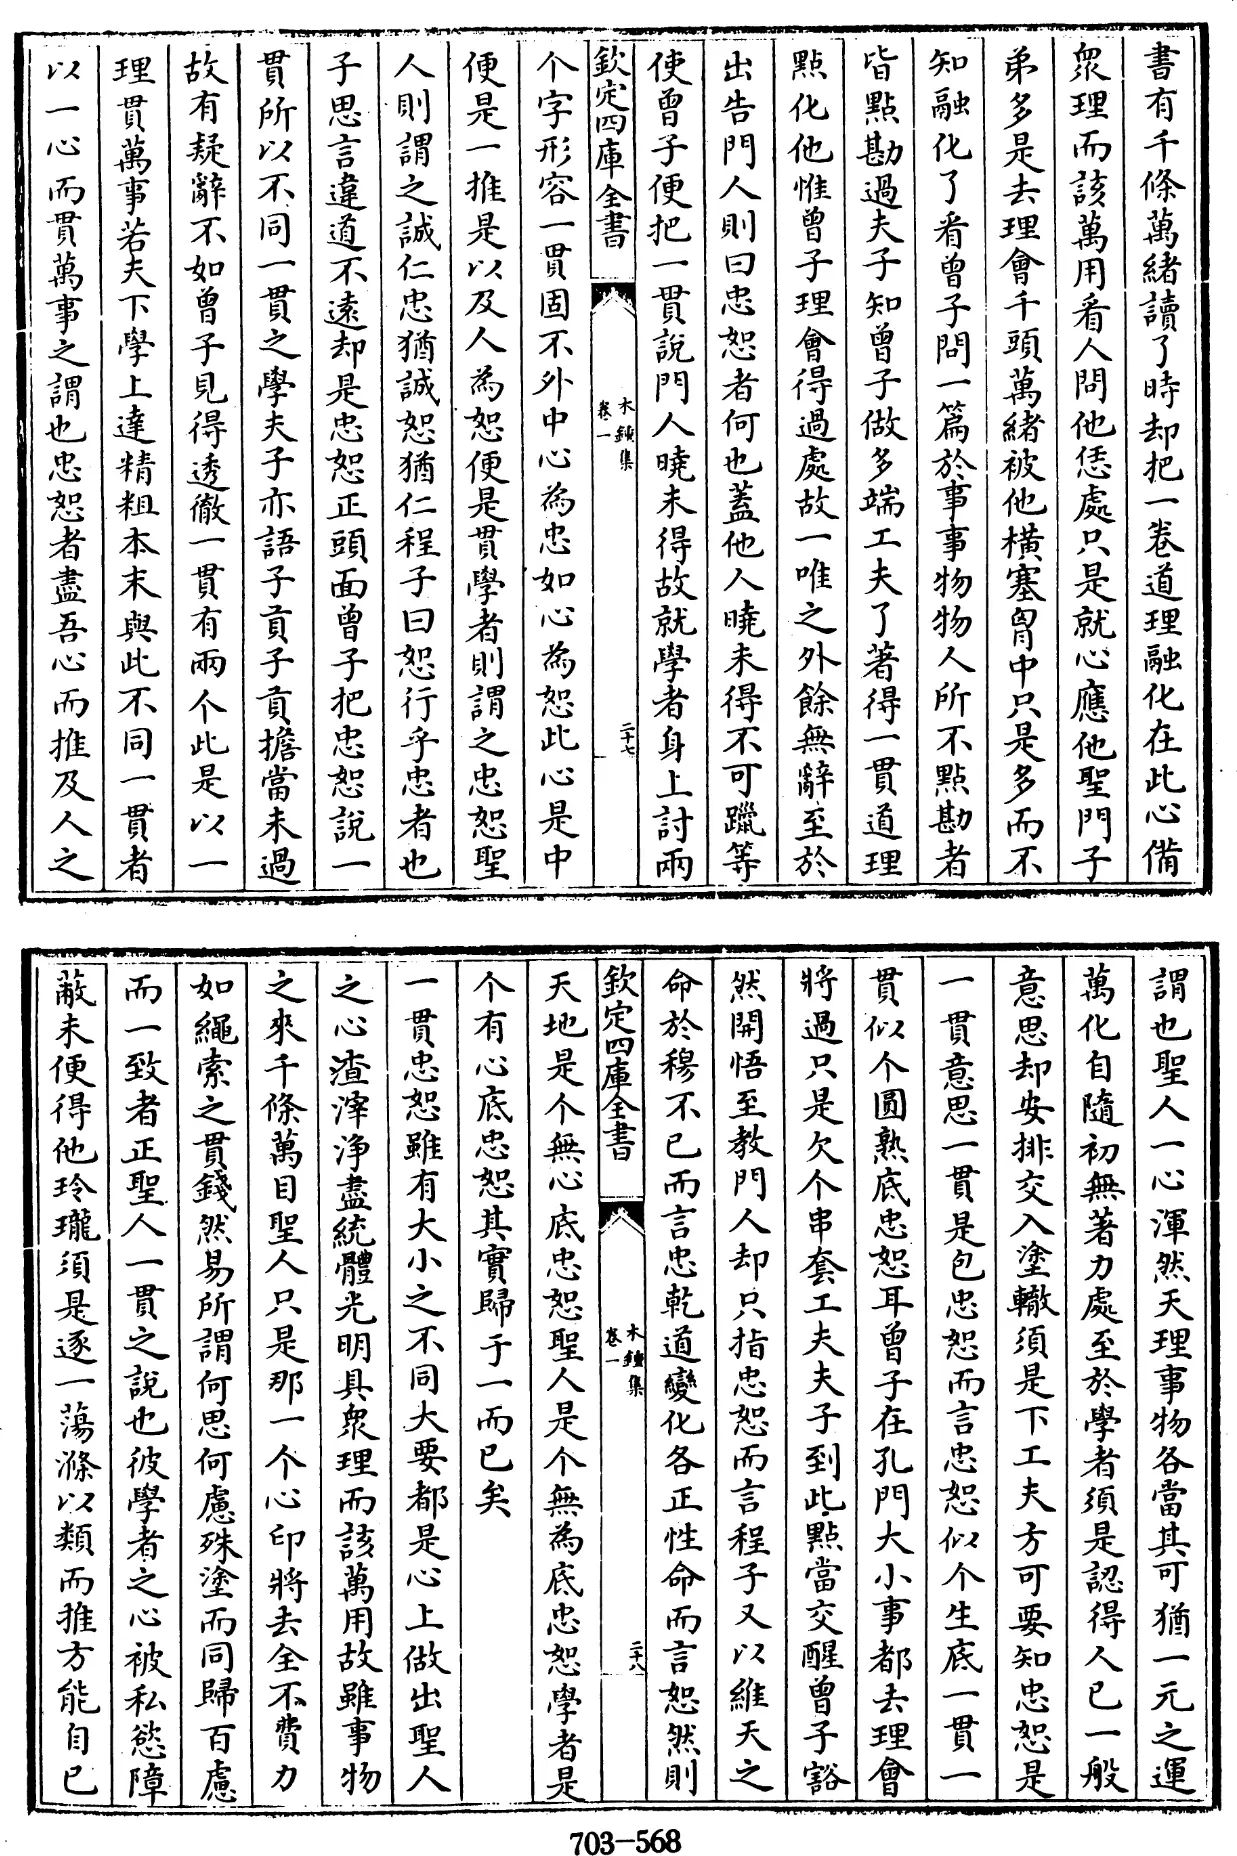 書有千條萬緒讀了時却把一卷道理融化在此心備
衆理而該萬用看人問他恁處只是就心應他聖門子
弟多是去理會千頭萬緒被他橫塞胷中只是多而不
知融化了看曾子問一篇於事事物物人所不點勘者
皆點勘過夫子知曾子做多端工夫了著得一貫道理
點化他惟曾子理會得過處故一唯之外餘無辭至於
出告門人則曰忠恕者何也蓋他人曉未得不可躐等
使曾子便把一貫說門人曉未得故就學者身上討兩
欽定四庫全書
木鐘集
卷一
二十七
个字形容一貫固不外中心為忠如心為恕此心是中
便是一推是以及人為恕便是貫學者則謂之忠恕聖
人則謂之誠仁忠猶誠恕猶仁程子曰恕行乎忠者也
子思言違道不逺却是忠恕正頭面曾子把忠恕說一
貫所以不同一貫之學夫子亦語子貢子貢擔當未過
故有疑辭不如曾子見得透徹一貫有兩个此是以一
理貫萬事若夫下學上達精粗本末與此不同一貫者
以一心而貫萬事之謂也忠恕者盡吾心而推及人之
謂也聖人一心渾然天理事物各當其可猶一元之運
萬化自隨初無著力處至於學者須是認得人已一般
意思却安排交入塗轍須是下工夫方可要知忠恕是
一貫意思一貫是包忠恕而言忠恕似个生底一貫一
貫似个圓熟底忠恕耳曾子在孔門大小事都去理會
將過只是欠个串套工夫夫子到此點當交醒曾子豁
然開悟至教門人却只指忠恕而言程子又以維天之
命於穆不已而言忠乾道變化各正性命而言恕然則
欽定四庫全書
木鐘集
卷一
二十八
天地是个無心底忠恕聖人是个無為底忠恕學者是
个有心底忠恕其實歸于一而已矣
一貫忠恕雖有大小之不同大要都是心上做出聖人
之心渣滓淨盡統體光明具衆理而該萬用故雖事物
之來千條萬目聖人只是那一个心印將去全不費力
如繩索之貫錢然易所謂何思何慮殊塗而同歸百慮
而一致者正聖人一貫之說也彼學者之心被私慾障
蔽未便得他玲瓏須是逐一蕩滌以類而推方能自已
703-568